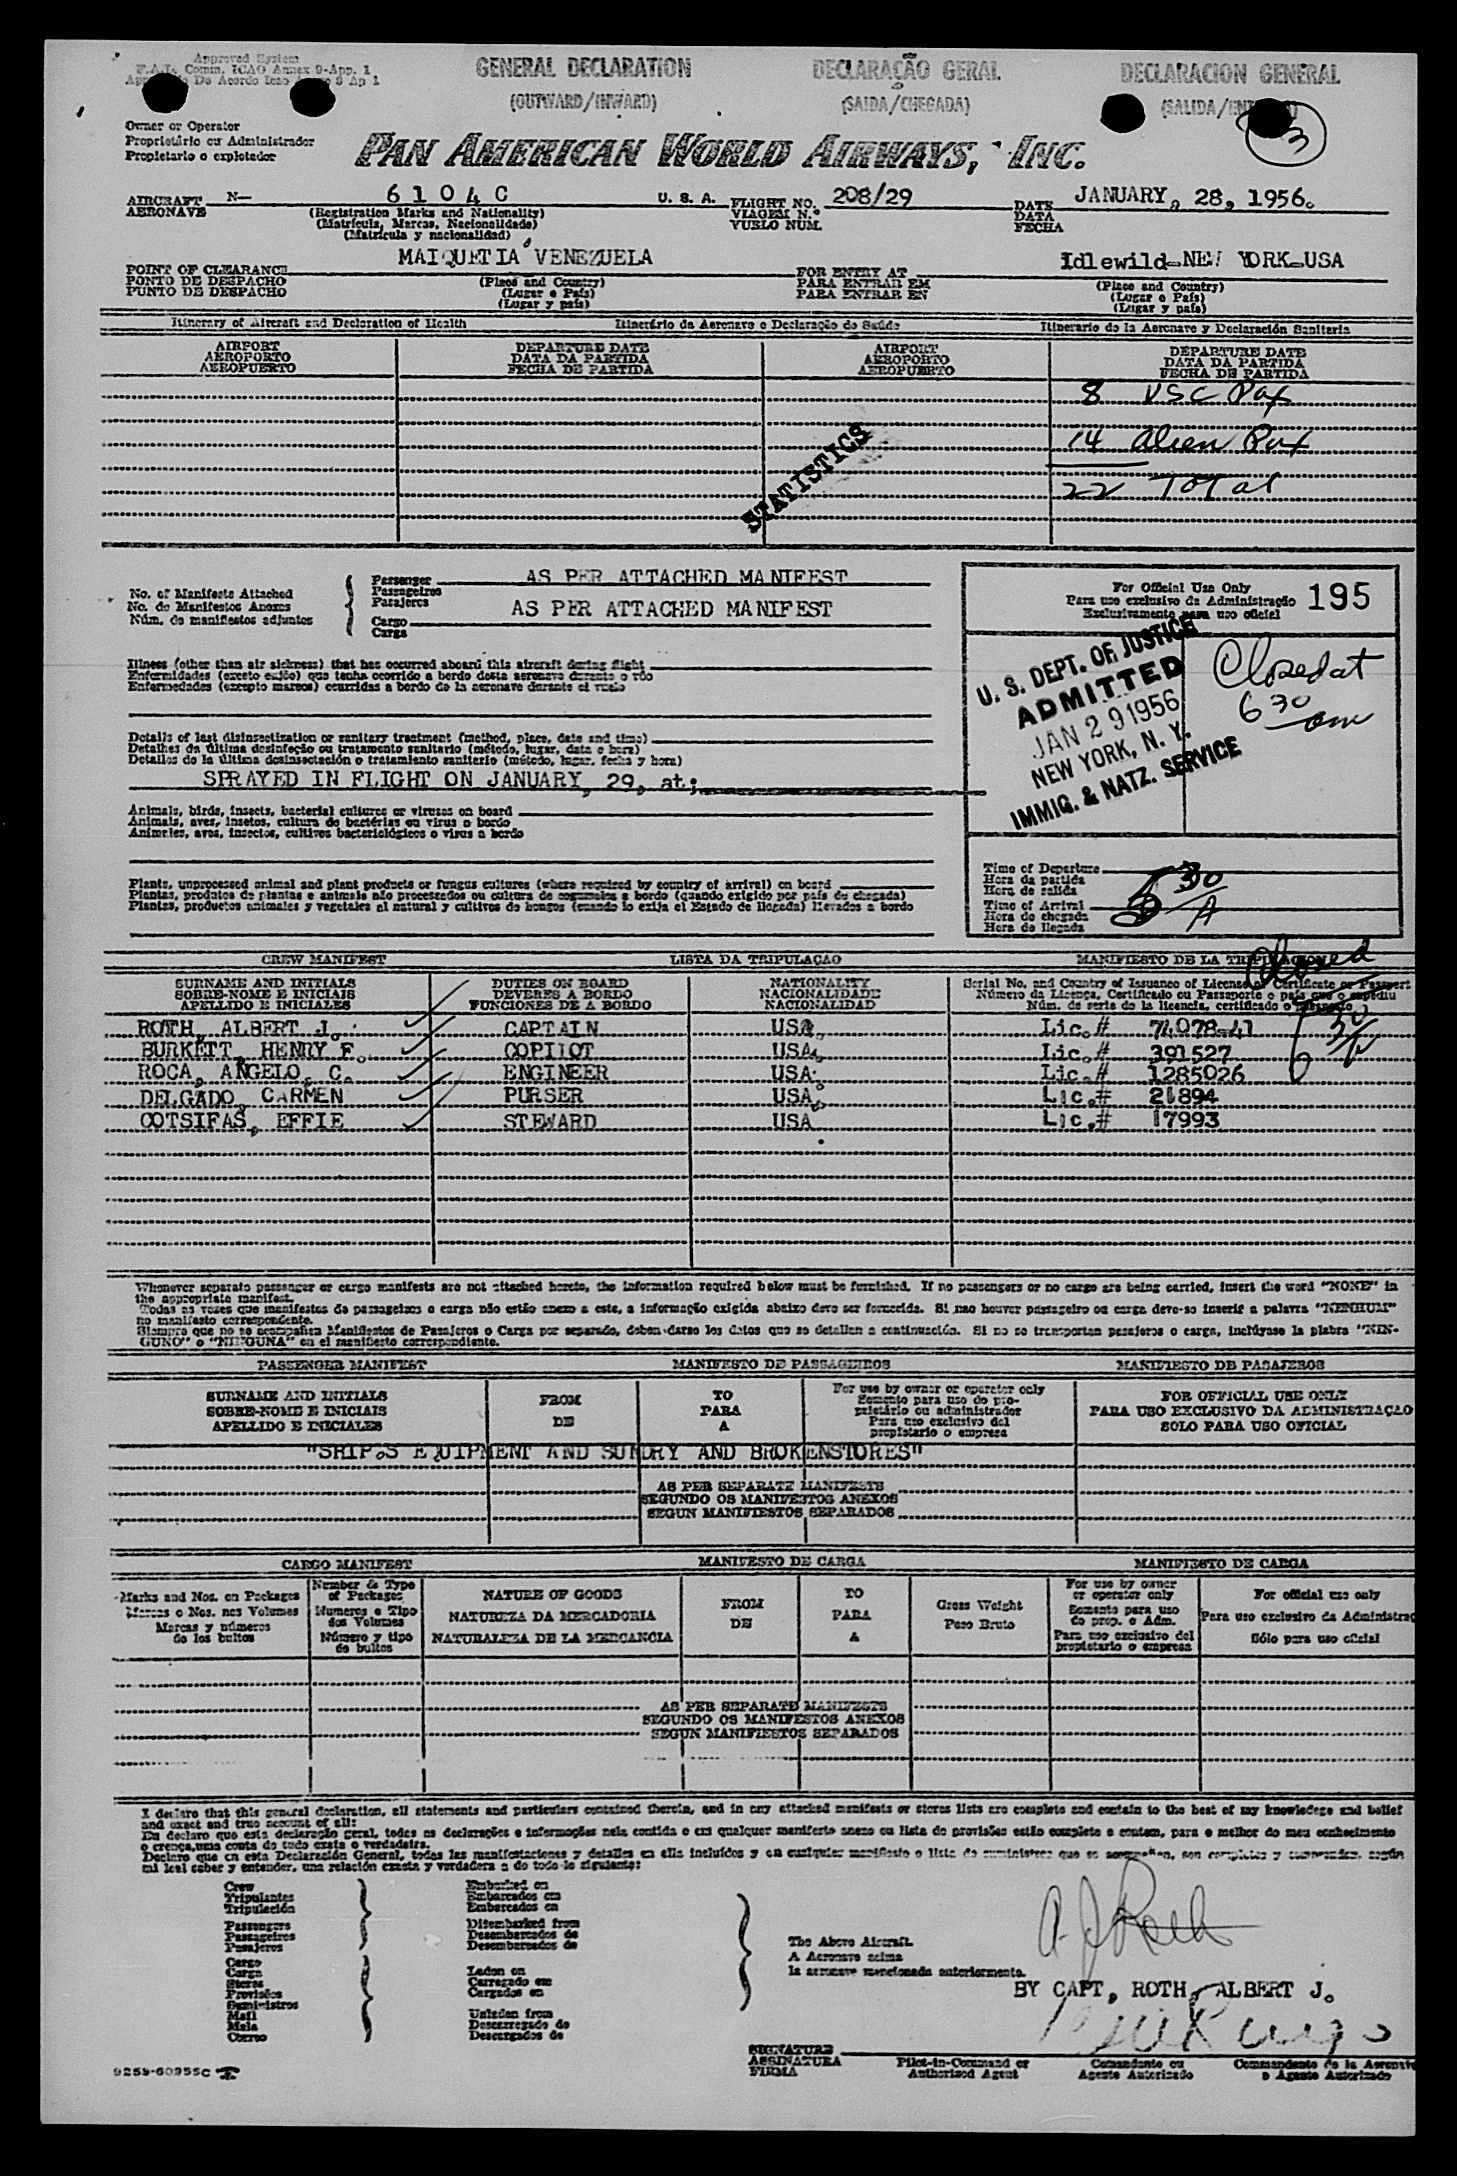 Approved System
F.A.L. Comm. ICAO Annex 9-App. 1
GENERAL DECLARATION
DECLARAÇÃO GERAL
DECLARACION GENERAL
(OUTWARD/INWARD)
(SAIDA/CHEGADA)
(SALIDA/
3
Owner or Operator
Proprietário ou Administrador
Propietario o explotador
PAN AMERICAN WORLD AIRWAYS, INC.
AIRCRAFT N— 6104C U. S. A. FLIGHT NO. 208/29 DATE JANUARY, 28, 1956.
AERONAVE (Registration Marks and Nationality) VIAGEM N.° DATA
(Matricula, Marcas, Nacionalidade) VUELO NUM. FECHA
(Matricula y nacionalidad)
MAIQUETIA VENEZUELA Idlewild-NEW YORK-USA
POINT OF CLEARANCE (Place and Country) FOR ENTRY AT (Place and Country)
PONTO DE DESPACHO (Lugar e País) PARA ENTRAR EM (Lugar e País)
PUNTO DE DESPACHO (Lugar y país) PARA ENTRAR EN (Lugar y país)
Itinerary of Aircraft and Declaration of Health Itinerário da Aeronave e Declaração de Saúde Itinerario de la Aeronave y Declaración Sanitaria
AIRPORT DEPARTURE DATE AIRPORT DEPARTURE DATE
AEROPORTO DATA DA PARTIDA AEROPORTO DATA DA PARTIDA
AEROPUERTO FECHA DE PARTIDA AEROPUERTO FECHA DE PARTIDA
8 USC Pax
14 Alien Pax
22 Total
STATISTICS
No. of Manifests Attached
No. de Manifestos Anexos
Núm. de manifiestos adjuntos
Passenger AS PER ATTACHED MANIFEST
Passageiros
Pasajeros
Cargo AS PER ATTACHED MANIFEST
Carga
For Official Use Only
Para uso exclusivo da Administração
Exclusivamente para uso oficial
195
U. S. DEPT. OF JUSTICE
ADMITTED
JAN 29 1956
NEW YORK, N. Y.
IMMIG. & NATZ. SERVICE
Closed at
6 30 am
Illness (other than air sickness) that has occurred aboard this aircraft during flight
Enfermidades (exceto enjôo) que tenha ocorrido a bordo desta aeronave durante o vôo
Enfermedades (excepto mareos) ocurridas a bordo de la aeronave durante el vuelo
Details of last disinsectization or sanitary treatment (method, place, date and time)
Detalhes da última desinfeção ou tratamento sanitario (método, lugar, data e hora)
Detalles de la última desinsectación o tratamiento sanitario (método, lugar, fecha y hora)
SPRAYED IN FLIGHT ON JANUARY, 29, at;
Animals, birds, insects, bacterial cultures or viruses on board
Animais, aves, insetos, cultura de bactérias ou virus a bordo
Animales, aves, insectos, cultivos bacteriológicos o virus a bordo
Plants, unprocessed animal and plant products or fungus cultures (where required by country of arrival) on board
Plantas, produtos de plantas e animais não processados ou cultura de cogumelos a bordo (quando exigido por país de chegada)
Plantas, productos animales y vegetales al natural y cultivos de hongos (cuando lo exija el Estado de llegada) llevados a bordo
Time of Departure
Hora da partida
Hora de salida
Time of Arrival
Hora de chegada
Hora de llegada
5 30 A
CREW MANIFEST LISTA DA TRIPULAÇÃO MANIFIESTO DE LA TRIPULACION
Closed
6 30
SURNAME AND INITIALS DUTIES ON BOARD NATIONALITY Serial No. and Country of Issuance of License or Certificate or Passport
SOBRE-NOME E INICIAIS DEVERES A BORDO NACIONALIDADE Número da Licença, Certificado ou Passaporte e país que o expediu
APELLIDO E INICIALES FUNCIONES DE A BORDO NACIONALIDAD Núm. de serie de la licencia, certificado o
ROTH, ALBERT J. CAPTAIN USA Lic.# 74078-41
BURKETT, HENRY F. COPILOT USA Lic.# 391527
ROCA, ANGELO, C. ENGINEER USA Lic.# 1285026
DELGADO, CARMEN PURSER USA Lic.# 21894
COTSIFAS, EFFIE STEWARD USA Lic.# 17993
Whenever separate passenger or cargo manifests are not attached hereto, the information required below must be furnished. If no passengers or no cargo are being carried, insert the word "NONE" in
the appropriate manifest.
Todas as vezes que manifestos de passageiros e carga não estão anexo a este, a informação exigida abaixo deve ser fornecida. Si nao houver passageiro ou carga deve-se inserir a palavra "NENHUM"
no manifesto correspondente.
Siempre que no se acompañen Manifiestos de Pasajeros o Carga por separado, deben darse los datos que se detallan a continuación. Si no se transportan pasajeros o carga, inclúyase la plabra "NIN-
GUNO" o "NINGUNA" en el manifiesto correspondiente.
PASSENGER MANIFEST MANIFESTO DE PASSAGEIROS MANIFIESTO DE PASAJEROS
SURNAME AND INITIALS FROM TO For use by owner or operator only FOR OFFICIAL USE ONLY
SOBRE-NOME E INICIAIS DE PARA Somente para uso do pro- PARA USO EXCLUSIVO DA ADMINISTRAÇAO
APELLIDO E INICIALES A prietário ou administrador SOLO PARA USO OFICIAL
Para uso exclusivo del
propietario o empresa
"SHIP'S EQUIPMENT AND SUNDRY AND BROKENSTORES"
AS PER SEPARATE MANIFESTS
SEGUNDO OS MANIFESTOS ANEXOS
SEGUN MANIFIESTOS SEPARADOS
CARGO MANIFEST MANIFESTO DE CARGA MANIFIESTO DE CARGA
Marks and Nos. on Packages Number & Type of Packages NATURE OF GOODS FROM TO Gross Weight For use by owner or operator only For official use only
Marcas e Nos. nos Volumes Numeros e Tipo dos Volumes NATUREZA DA MERCADORIA DE PARA Peso Bruto Somente para uso do prop. e Adm. Para uso exclusivo da Administraç
Marcas y números de los bultos Número y tipo de bultos NATURALEZA DE LA MERCANCIA A Para uso exclusivo del propietario o empresa Sólo para uso oficial
AS PER SEPARATE MANIFESTS
SEGUNDO OS MANIFESTOS ANEXOS
SEGUN MANIFIESTOS SEPARADOS
I declare that this general declaration, all statements and particulars contained therein, and in any attached manifests or stores lists are complete and contain to the best of my knowledge and belief
and exact and true account of all:
Eu declaro que esta declaração geral, todas as declarações e informações nela contida e em qualquer manifesto anexo ou lista de provisões estão completo e contem, para o melhor do meu conhecimento
e crença, uma conta de tudo exata e verdadeira.
Declaro que en esta Declaración General, todas las manifestaciones y detalles en ella incluídos y en cualquier manifiesto o lista de suministros que se acompañen, son completos y comprenden, según
mi leal saber y entender, una relación exacta y verdadera a de todo lo siguiente:
Crew
Tripulantes
Tripulación
Passengers
Passageiros
Pasajeros
Cargo
Carga
Stores
Provisões
Suministros
Mail
Mala
Correo
Embarked on
Embarcados em
Embarcados en
Disembarked from
Desembarcados de
Desembarcados de
Laden on
Carregado em
Cargados en
Unladen from
Descarregado de
Descargados de
The Above Aircraft.
A Aeronave acima
la aeronave mencionada anteriormente.
A. J. Roth
BY CAPT, ROTH, ALBERT J.
SIGNATURE
ASSINATURA
FIRMA
Pilot-in-Command or Comandante ou Commandante de la Aeronave
Authorized Agent Agente Autorizado o Agente Autorizado